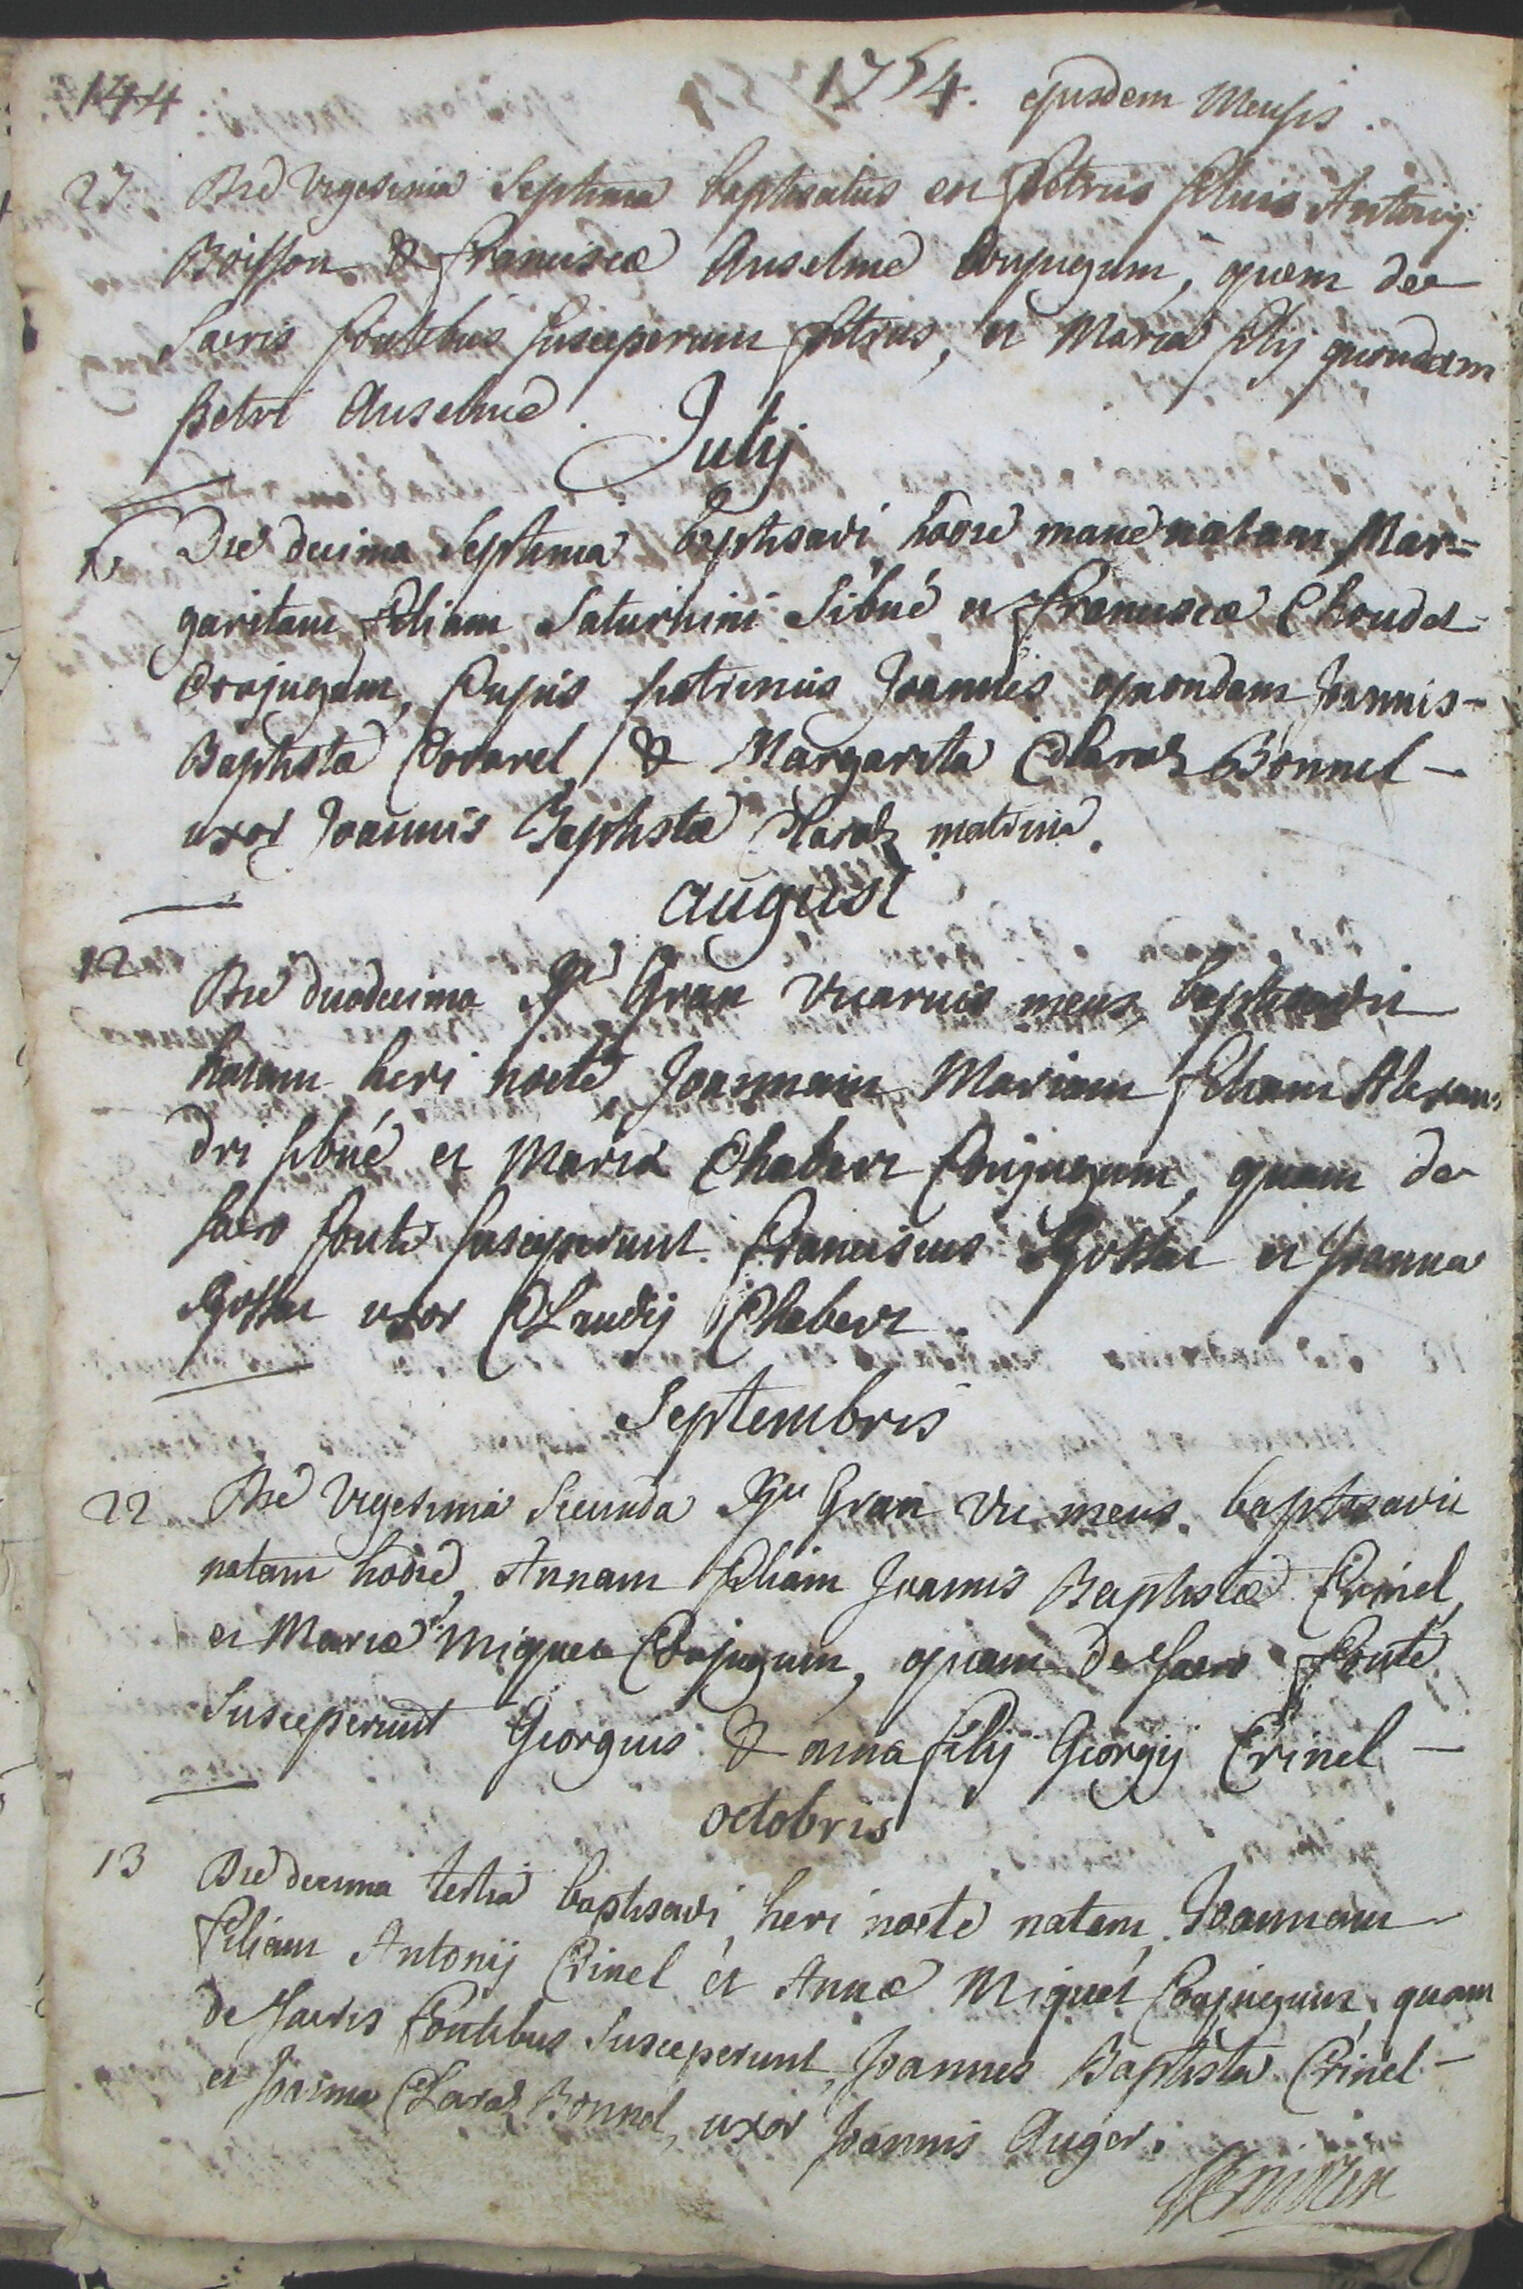 144
1754. ejusdem Mensis.
27 Die vigesima Septima baptisatus est petrus filius Antonij
Boisson & franciscæ Anselme Conjugum, quem de
Sacris fontibus susceperunt petrus, et Maria filij quondam
petri Anselme.
Julij
Die decima Septima baptisavi, hodie mane natam Mar=
garitam filiam Saturnini Sibué et franciscæ Choudet
Conjugum, Cujus patrinus Joannes quondam Joannis-
Baptista Covarel, & Margarita Claraz Bonnel -
uxor Joannis Baptistæ Claraz matrina.
august
12 Die duodecima Rd Gran Vicarius meus, baptisavit
natam heri nocte, Joannam Mariam filiam Alexan=
dri sibué et Maria Chabert Conjugum, quam de
sacro fonte susceperunt franciscus et Joanna
uxor Claudij Chabert.
Septembris
22 Die vigesima Secunda Rdus Gran vic meus. baptisavit
natam hodie, Annam filiam Joannis Baptistæ Crinel,
et Mariæ Miquet Conjugum, quam de sacro fonte
susceperunt Georgius & anna filij Georgij Crinel -
octobris
13 Die decima tertia baptisavi, heri nocte natam, Joannam
filiam Antonij Crinel et Annæ Miquet Conjugum, quam
de sacris fontibus susceperunt, Joannes Baptista Crinel -
et Joanna Claraz Bonnel, uxor Joannis Auger.